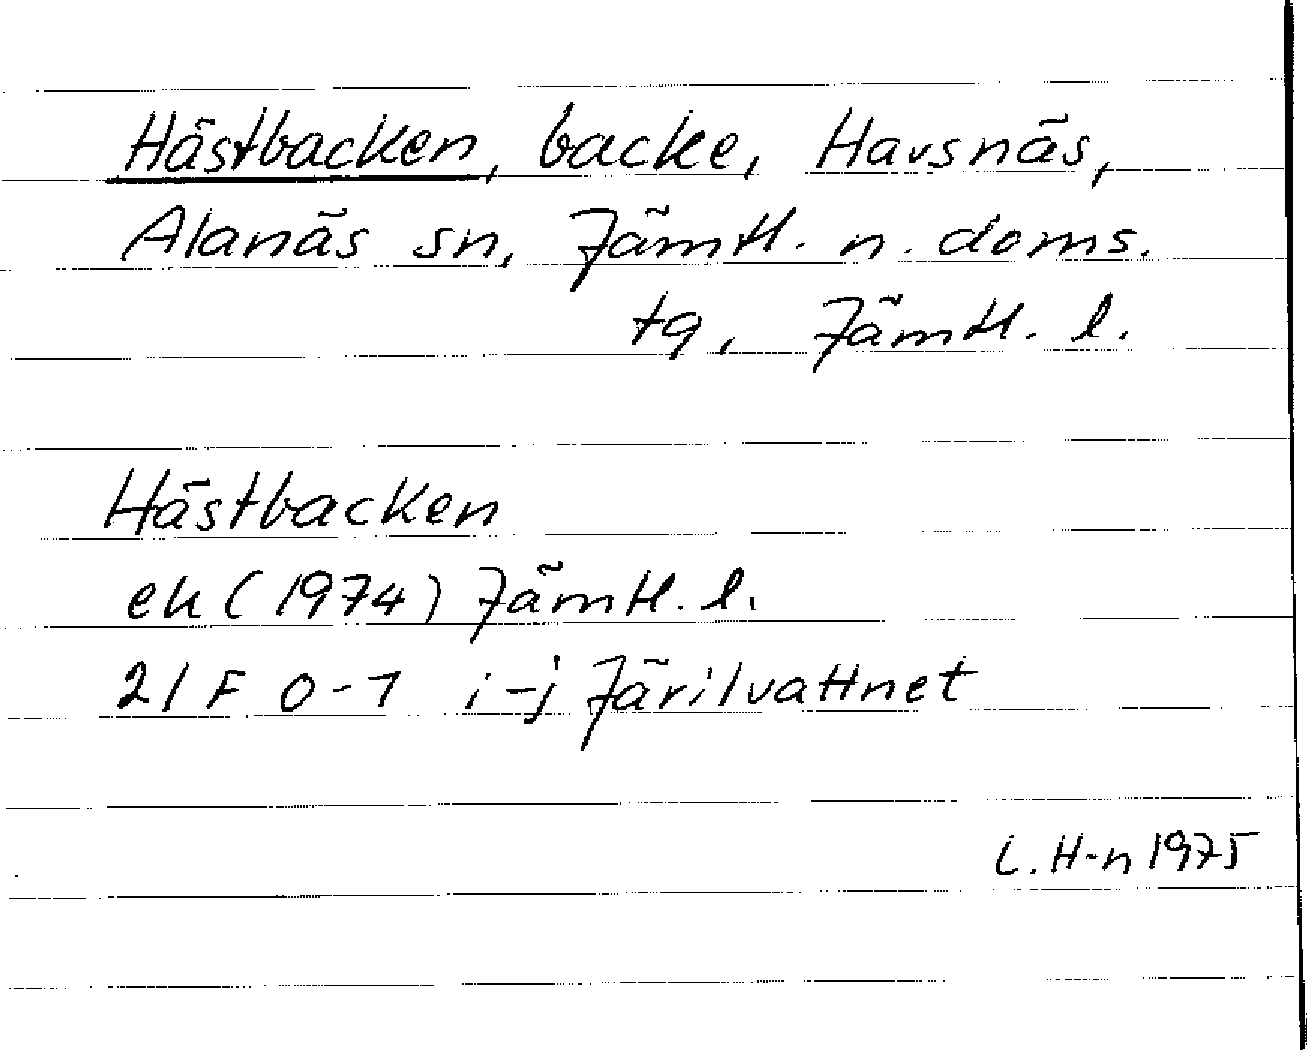 Hästbacken, backe, Havsnäs,
Alanäs sn, Jämtl. n. doms.
tg, Jämtl. l.
Hästbacken
ek (1974) Jämtl. l.
21 F 0-1 i-j Järilvattnet
L. H-n 1975